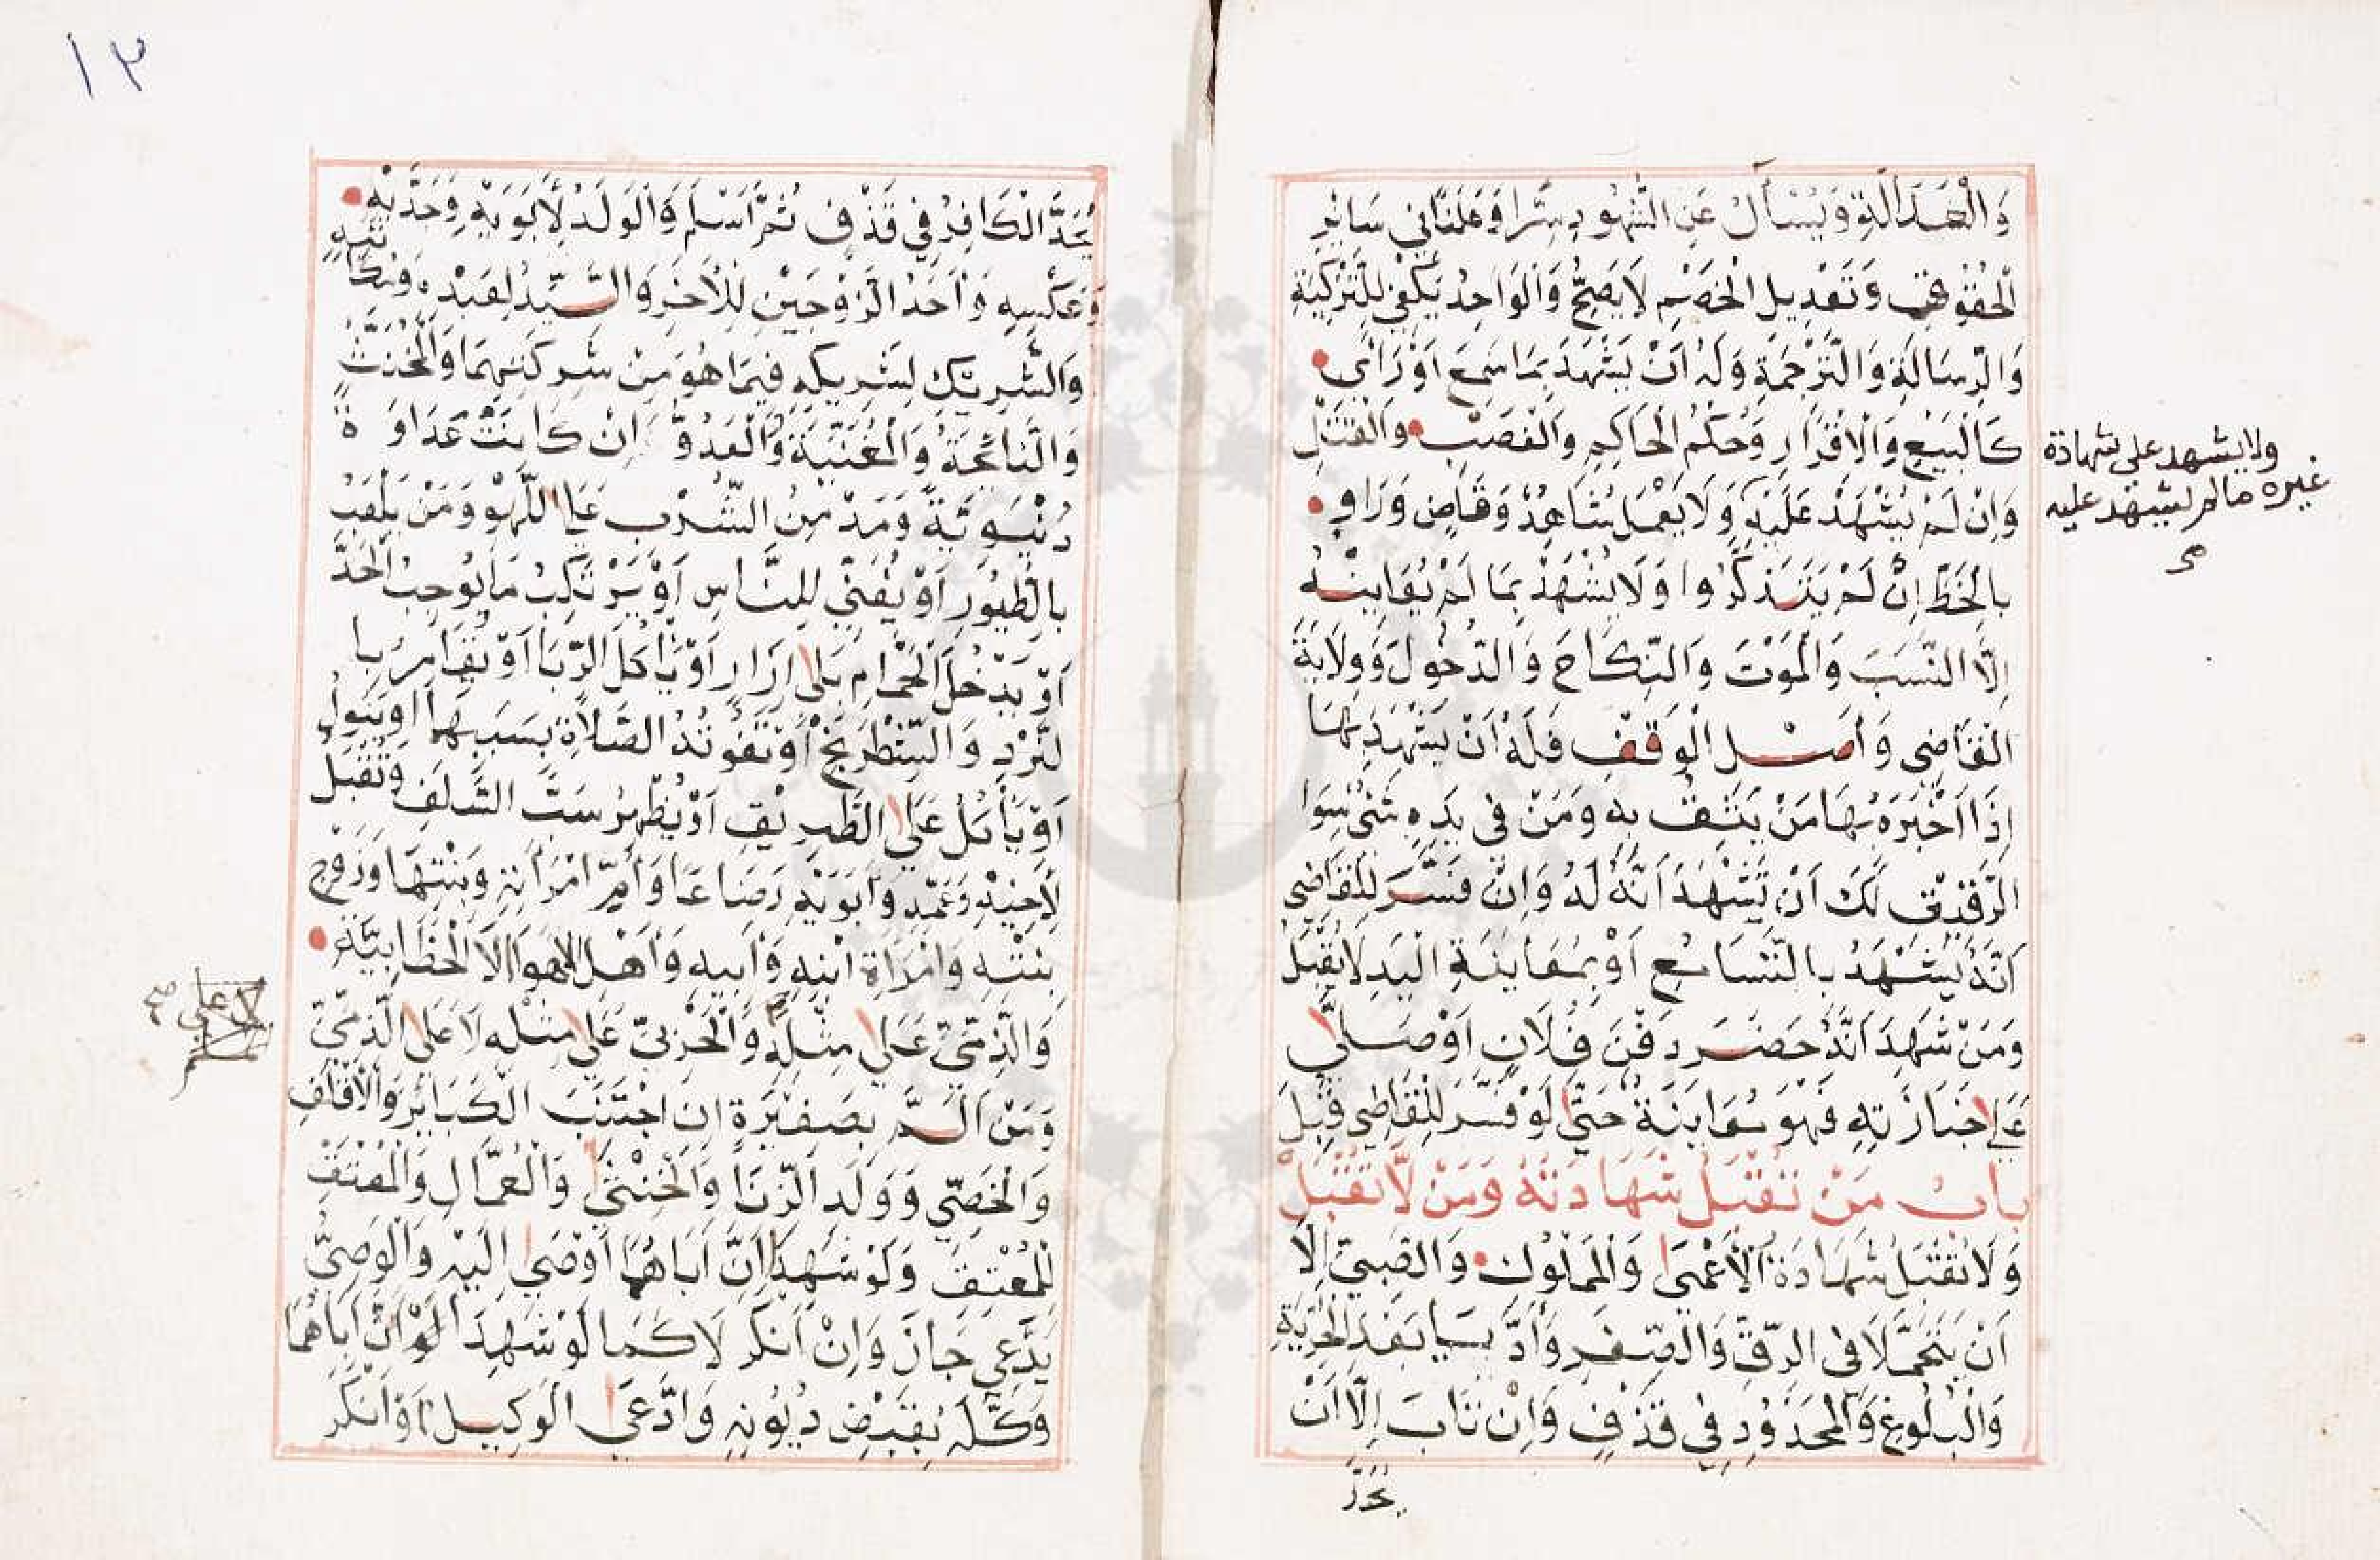 وَالْعَدَالَةِ وَيُسْأَلُ عَنِ الشُّهُودِ سِرًّا وَعَلَنًا فِي سَائِرِ
الْحُقُوقِ وَتَعْدِيلُ الْخَصْمِ لَا يَصِحُّ وَالْوَاحِدُ يَكْفِي لِلتَّزْكِيَةِ
وَالرِّسَالَةِ وَالتَّرْجَمَةِ وَلَهُ أَنْ يَشْهَدَ بِمَا سَمِعَ أَوْ رَأَى
كَالْبَيْعِ وَالْإِقْرَارِ وَحُكْمِ الْحَاكِمِ وَالْغَصْبِ وَالْقَتْلِ
وَإِنْ لَمْ يُشْهَدْ عَلَيْهِ وَلَا يَعْمَلُ شَاهِدٌ وَقَاضٍ وَرَاوٍ
بِالْخَطِّ إِنْ لَمْ يَتَذَكَّرُوا وَلَا يُشْهَدُ بِمَا لَمْ يُعَايِنْهُ
إِلَّا النَّسَبَ وَالْمَوْتَ وَالنِّكَاحَ وَالدُّخُولَ وَوِلَايَةَ
الْقَاضِي وَأَصْلَ الْوَقْفِ فَلَهُ أَنْ يَشْهَدَ بِهَا
إِذَا أَخْبَرَهُ بِهَا مَنْ يَثِقُ بِهِ وَمَنْ فِي يَدِهِ شَيْءٌ سِوَا
الرَّقِيقِ لَكَ أَنْ تَشْهَدَ أَنَّهُ لَهُ وَإِنْ فَسَّرَ لِلْقَاضِي
أَنَّهُ يَشْهَدُ بِالتَّسَامُعِ أَوْ بِمُعَايَنَةِ الْيَدِ لَا يُقْبَلُ
وَمَنْ شَهِدَ أَنَّهُ حَضَرَ دَفْنَ فُلَانٍ أَوْ صَلَّى
عَلَى جَنَازَتِهِ فَهُوَ مُعَايَنَةٌ حَتَّى لَوْ فَسَّرَ لِلْقَاضِي قُبِلَ
بَابُ مَنْ تُقْبَلُ شَهَادَتُهُ وَمَنْ لَا تُقْبَلُ
وَلَا تُقْبَلُ شَهَادَةُ الْأَعْمَى وَالْمَمْلُوكِ وَالصَّبِيِّ إِلَّا
أَنْ يَتَحَمَّلَا فِي الرِّقِّ وَالصِّغَرِ وَأَدَّيَا بَعْدَ الْحُرِّيَّةِ
وَالْبُلُوغِ وَالْمَحْدُودِ فِي قَذْفٍ وَإِنْ تَابَ إِلَّا أَنْ
يُحَدَّ
ولا يشهد على شهادة
غيره ما لم يشهد عليه
صح
١٣
يُحَدَّ الْكَافِرُ فِي قَذْفٍ ثُمَّ أَسْلَمَ وَالْوَلَدُ لِأَبَوَيْهِ وَجَدَّيْهِ
وَعَكْسِهِ وَأَحَدُ الزَّوْجَيْنِ لِلْآخَرِ وَالسَّيِّدُ لِعَبْدِهِ وَمُكَاتَبِهِ
وَالشَّرِيكُ لِشَرِيكِهِ فِيمَا هُوَ مِنْ شَرِكَتِهِمَا وَالْمُخَنَّثُ
وَالنَّائِحَةُ وَالْمُغَنِّيَةُ وَالْعَدُوُّ إِنْ كَانَتْ عَدَاوَةً
دُنْيَوِيَّةً وَمُدْمِنُ الشُّرْبِ عَلَى اللَّهْوِ وَمَنْ يَلْعَبُ
بِالطُّيُورِ أَوْ يُغَنِّي لِلنَّاسِ أَوْ يَرْتَكِبُ مَا يُوجِبُ الْحَدَّ
أَوْ يَدْخُلُ الْحَمَّامَ بَلَا إِزَارٍ أَوْ يَأْكُلُ الرِّبَا أَوْ يُقَامِرُ بِا
لنَّرْدِ وَالشِّطْرَنْجِ أَوْ تَفُوتُهُ الصَّلَاةُ بِسَبَبِهِمَا أَوْ يَبُولُ
أَوْ يَأْكُلُ عَلَى الطَّرِيقِ أَوْ يُظْهِرُ سَبَّ السَّلَفِ وَتُقْبَلُ
لِأَخِيهِ وَعَمِّهِ وَأَبَوَيْهِ رَضَاعًا وَأُمِّ امْرَأَتِهِ وَبِنْتِهَا وَزَوْجِ
بِنْتِهِ وَامْرَأَةِ ابْنِهِ وَأَبِيهِ وَأَهْلِ الْأَهْوَاءِ إِلَّا الْخَطَّابِيَّةِ
وَالذِّمِّيِّ عَلَى مِثْلِهِ وَالْحَرْبِيِّ عَلَى مِثْلِهِ لَا عَلَى الذِّمِّيِّ
وَمَنْ أَلَمَّ بِصَغِيرَةٍ إِنِ اجْتَنَبَ الْكَبَائِرَ وَالْأَقْلَفِ
وَالْخَصِيِّ وَوَلَدِ الزِّنَا وَالْخُنْثَى وَالْعُمَّالِ وَالْمُعْتَقِ
لِلْمُعْتِقِ وَلَوْ شَهِدَا أَنَّ أَبَاهُمَا أَوْصَى إِلَيْهِ وَالْوَصِيُّ
يَدَّعِي جَازَ وَإِنْ أَنْكَرَ لَا كَمَا لَوْ شَهِدَا أَنَّ أَبَاهُمَا
وَكَّلَهُ بِقَبْضِ دُيُونِهِ وَادَّعَى الْوَكِيلُ أَوْ أَنْكَرَ